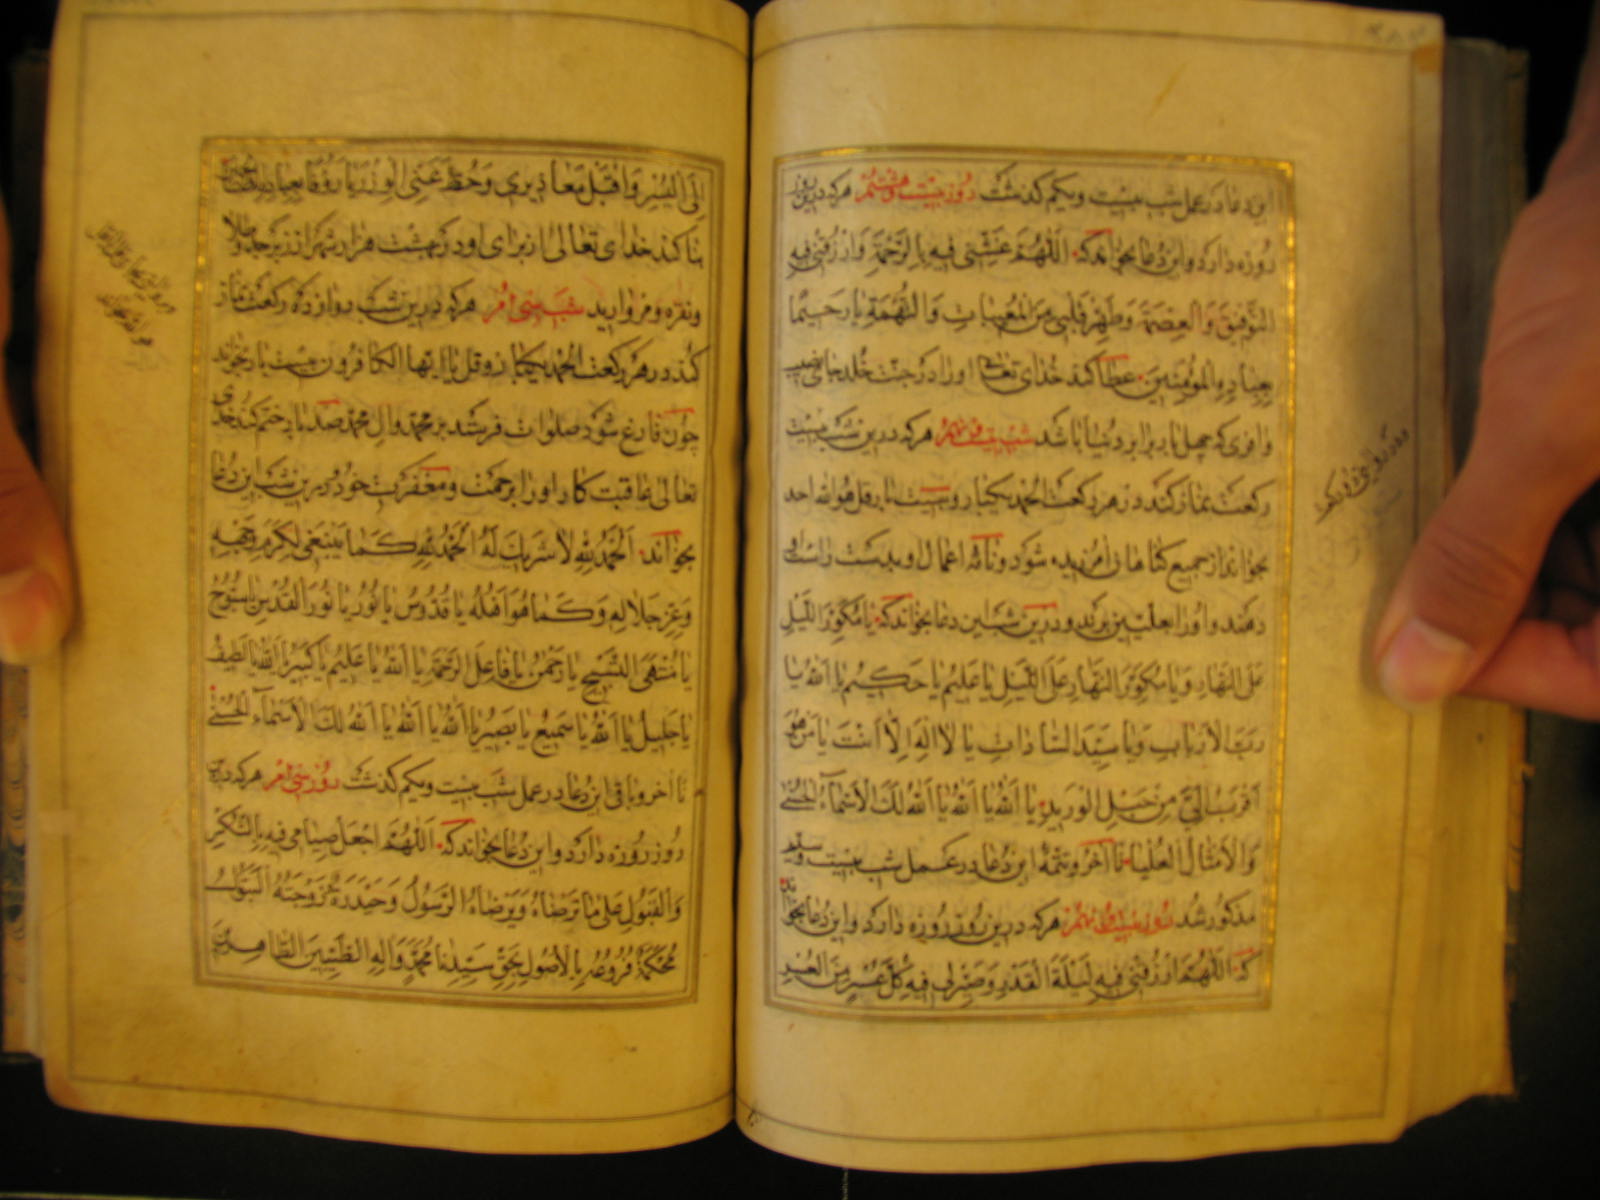 این دعا در عمل شب بیست ویکم کذشت روز بیست وهشتم هرکه درین روز
روزه دارد و این دعا بخواند که اَللّٰهُمَّ غَشِّنی فیهِ بِالرَّحْمَةِ وَارْزُقْنی فیهِ
التَّوْفیقَ وَالْعِصْمَةَ وَطَهِّرْ قَلْبی مِنَ یا رَحیمًا
بِعِبادِهِ الْمُؤْمِنینَ عطا کند خدای تعالی او را در جنت خلد جای نصیب
وافری که چهل بار برابر دنیا باشد شب بیست ونهم هرکه درین شب بیست
رکعت نماز کند در هر رکعت الحمد یکبار وبیست بار قل هو الله احد
بخواند از جمیع کناهان امرزیده شود ونامه اعمال وبدست راست او
دهند واو را بعلیین برند ودرین شب این دعا بخواند که یا مُکَوِّرَ اللَّیْلِ
عَلَی النَّهارِ وَیا مُکَوِّرَ النَّهارِ عَلَی اللَّیْلِ یا عَلیمُ یا حَکیمُ یا اَللهُ یا
رَبَّ الْاَرْبابِ وَیا سَیِّدَ السّاداتِ یا لا اِلٰهَ اِلّا اَنْتَ یا مَنْ هُوَ
اَقْرَبُ اِلَیَّ مِنْ حَبْلِ الْوَریدِ یا اَللهُ یا اَللهُ یا اَللهُ لَکَ الْاَسْمآءُ الْحُسْنٰی
وَالْاَمْثالُ الْعُلْیا تا آخر وتتمهٔ این دعا در عمل شب بیست
مذکور شد روز بیست ونهم هرکه درین روز روزه دارد و این دعا بخواند
که اَللّٰهُمَّ ارْزُقْنی فیهِ لَیْلَةَ الْقَدْرِ وَصَیِّرْ لی فیهِ کُلَّ عُسْرٍ مِنَ الْعُسْرِ
اِلَی الْیُسْرِ وَاقْبَلْ مَعاذیری وَحُطَّ عَنِّی الْوِزْرَ یا رَؤُفًا بِعِبادِهِ الصّالِحینَ
بنا کند خدای تعالی از برای او در بهشت هزار شهر از زبرجد وطلا
ونقره ومروارید شب سی ام هرکه درین شب دوازده رکعت نماز
کند در هر رکعت الحمد یکبار وقل یا ایها الکافرون بیست بار بخواند
چون فارغ شود صلوات فرستد بر محمد وال محمد صد بار ختم کند خدای
تعالی عاقبت کار او را برحمت ومغفرت خود ودرین شب این دعا
بخواند اَلْحَمْدُ لِلّٰهِ لا شَریکَ لَهُ اَلْحَمْدُ لِلّٰهِ کَما یَنْبَغی لِکَرَمِ وَجْهِهِ
وَعِزِّ جَلالِهِ وَکَما هُوَ اَهْلُهُ یا قُدُّوسُ یا نُورُ یا نُورَ الْقُدْسِ یا سُبُّوحُ
یا مُنْتَهَی التَّسْبیحِ یا رَحْمٰنُ یا فاعِلَ الرَّحْمَةِ یا اَللهُ یا عَلیمُ یا کَبیرُ یا اَللهُ یا لَطیفُ
یا جَلیلُ یا اَللهُ یا سَمیعُ یا بَصیرُ یا اَللهُ یا اَللهُ یا اَللهُ لَکَ الْاَسْمآءُ الْحُسْنٰی
تا آخر وباقی این دعا در عمل شب بیست ویکم کذشت روز سی ام هرکه درین
روز روزه دارد و این دعا بخواند که اَللّٰهُمَّ اجْعَلْ صِیامی فیهِ بِالشُّکْرِ
وَالْقَبُولِ عَلٰی ما تَرْضاهُ وَیَرْضاهُ الرَّسُولُ وَحَیْدَرَةُ زَوْجَتُهُ الْبَتُولُ
مُحْکَمَةً فُرُوعُهُ بِالْاُصُولِ بِحَقِّ سَیِّدِنا مُحَمَّدٍ وَآلِهِ الطَّیِّبینَ الطّاهِرینَ